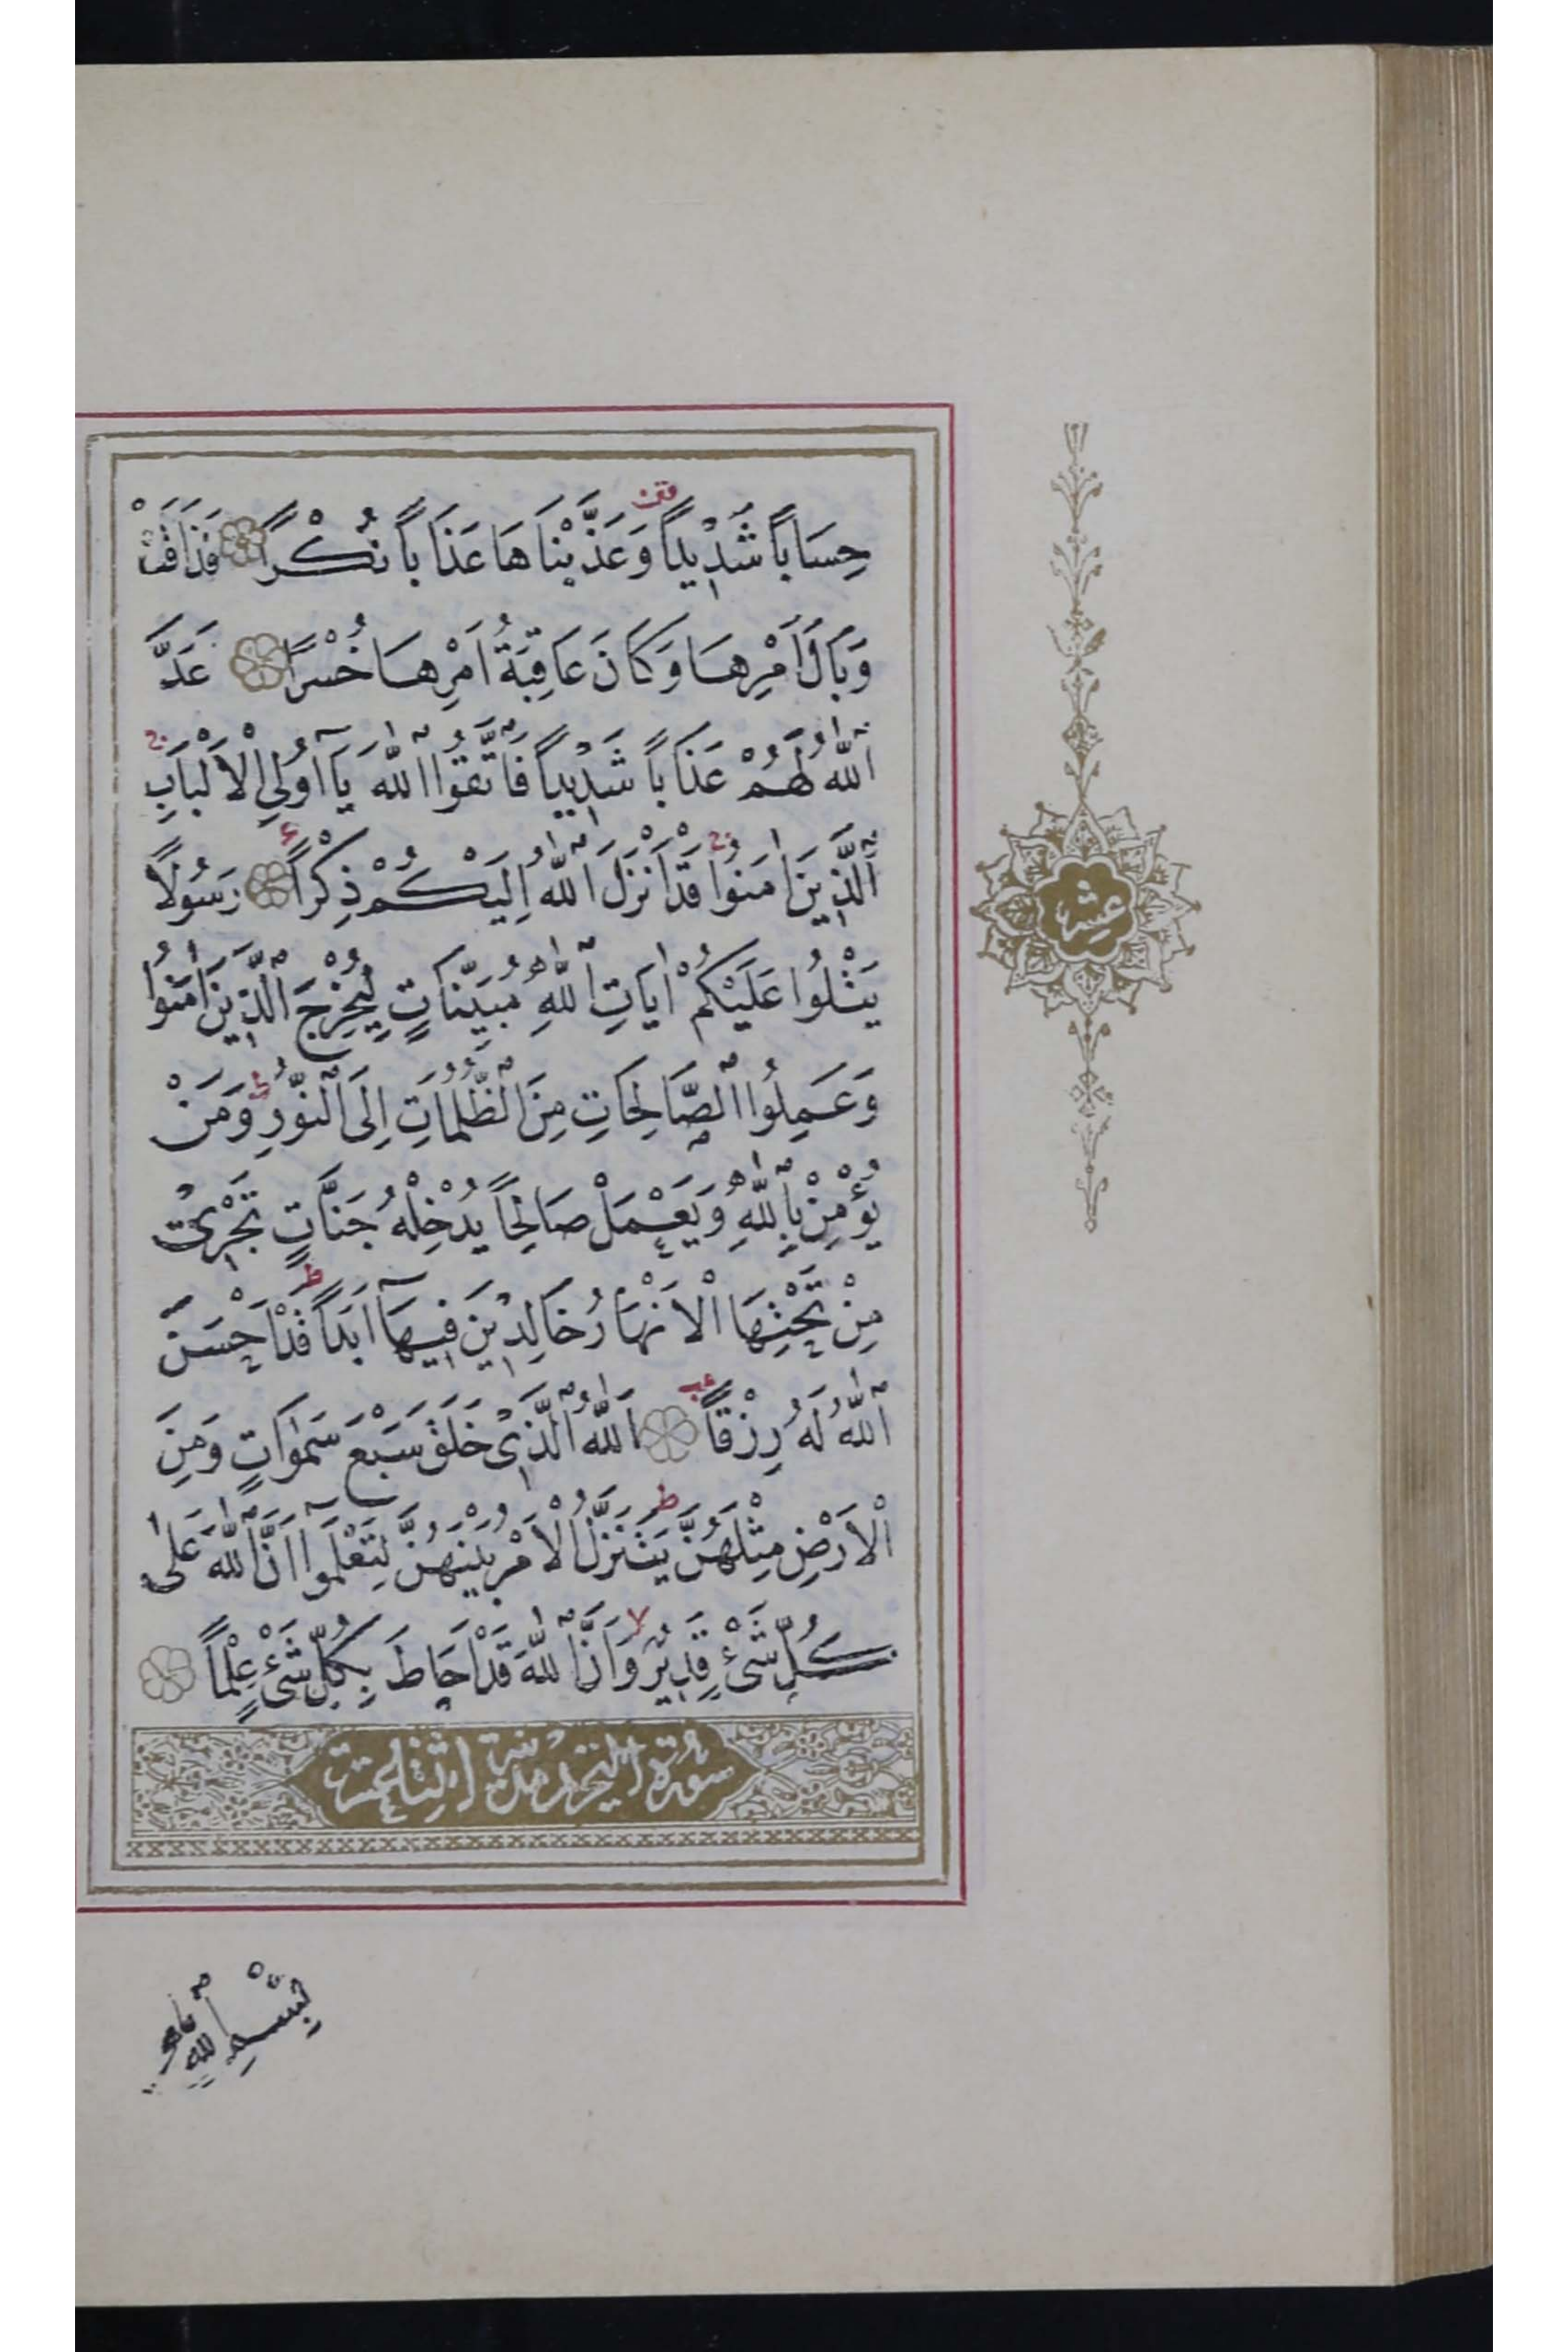 حِسَابًا شَدِيدًا وَعَذَّبْنَاهَا عَذَابًا نُكْرًا فَذَاقَتْ
وَبَالَ اَمْرِهَا وَكَانَ عَاقِبَةُ اَمْرِهَا خُسْرًا اَعَدَّ
اللّٰهُ لَهُمْ عَذَابًا شَدِيدًا فَاتَّقُوا اللّٰهَ يَآ اُولِي الْاَلْبَابِ
اَلَّذِينَ اٰمَنُوا قَدْ اَنْزَلَ اللّٰهُ اِلَيْكُمْ ذِكْرًا رَسُولًا
يَتْلُوا عَلَيْكُمْ اٰيَاتِ اللّٰهِ مُبَيِّنَاتٍ لِيُخْرِجَ الَّذِينَ اٰمَنُوا
وَعَمِلُوا الصَّالِحَاتِ مِنَ الظُّلُمَاتِ اِلَى النُّورِ وَمَنْ
يُؤْمِنْ بِاللّٰهِ وَيَعْمَلْ صَالِحًا يُدْخِلْهُ جَنَّاتٍ تَجْرِي
مِنْ تَحْتِهَا الْاَنْهَارُ خَالِدِينَ فِيهَآ اَبَدًا قَدْ اَحْسَنَ
اللّٰهُ لَهُ رِزْقًا اَللّٰهُ الَّذِي خَلَقَ سَبْعَ سَمٰوَاتٍ وَمِنَ
الْاَرْضِ مِثْلَهُنَّ يَتَنَزَّلُ الْاَمْرُ بَيْنَهُنَّ لِتَعْلَمُوآ اَنَّ اللّٰهَ عَلٰى
كُلِّ شَيْءٍ قَدِيرٌ وَاَنَّ اللّٰهَ قَدْ اَحَاطَ بِكُلِّ شَيْءٍ عِلْمًا
سورة التحريم مدنية اثنا عشرة
عشر
بِسْمِ اللّٰهِ